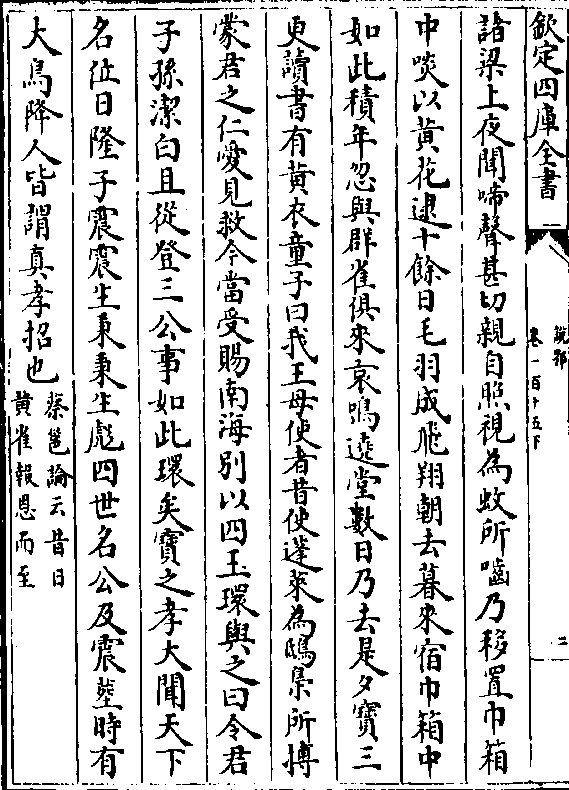 欽定四庫全書
說郛
卷一百十五下
二
諸梁上夜聞啼聲甚切親自照視為蚊所嚙乃移置巾箱
中啖以黃花逮十餘日毛羽成飛翔朝去暮來宿巾箱中
如此積年忽與群雀俱來哀鳴遶堂數日乃去是夕寶三
更讀書有黃衣童子曰我王母使者昔使蓬萊為鴟梟所搏
蒙君之仁愛見救今當受賜南海别以四玉環與之曰令君
子孫潔白且從登三公事如此環矣寶之孝大聞天下
名位日隆子震震生秉秉生彪四世名公及震塟時有
大鳥降人皆謂真孝招也
蔡邕論云昔日
黃雀報恩而至